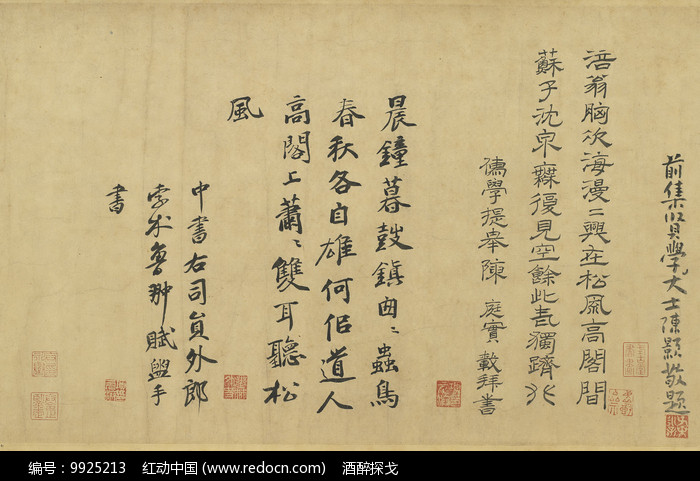 前集賢學士陳顥敬題
涪翁胸次海漫〻興在松風高閣間
蘇子沈泉無復見空餘此老獨躋
儒學提舉陳庭實敬拜書
晨鐘暮鼓鎮囪〻蟲鳥
春秋各自雄何侶道人
高閣上蕭〻雙耳聽松
風
中書右司員外郎
孛术魯翀賦盥手
書
编号：9925213 红动中国 (www.redocn.com) 酒醉探戈